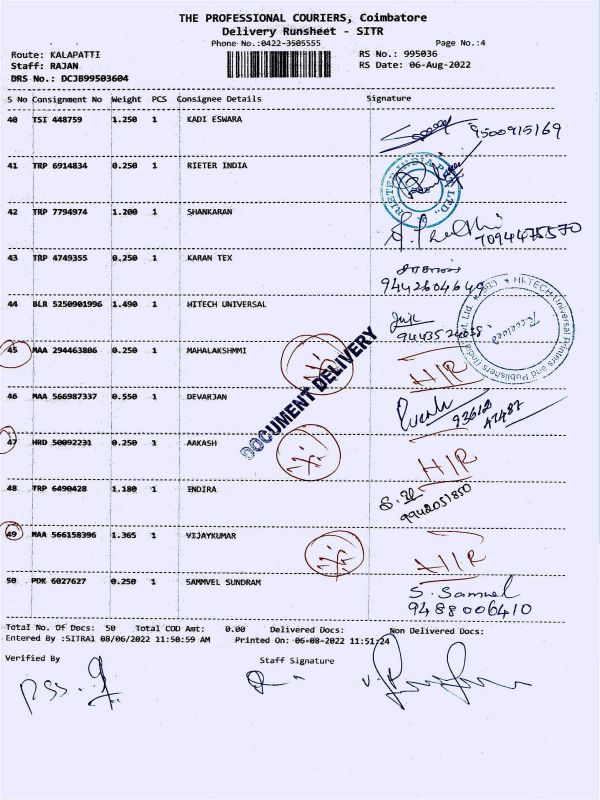 THE PROFESSIONAL COURIERS, Coimbatore
Delivery Runsheet - SITR
Phone No.:0422-3505555
Page No.:4
Route: KALAPATTI
RS No.: 995036
Staff: RAJAN
RS Date: 06-Aug-2022
DRS No.: DCJ899503604
S No Consignment No Weight PCS Consignee Details Signature
40 TSI 448759 1.250 1 KADI ESWARA
9500915169
41 TRP 6914834 0.250 1 RIETER INDIA
RIETER INDIA PVT. LTD.,
42 TRP 7794974 1.200 1 SHANKARAN
7094475570
43 TRP 4749355 0.250 1 KARAN TEX
9442604649
44 BLR 5250901996 1.490 1 HITECH UNIVERSAL
HI-TECH Universal Printers and Publishers (India) Pvt. Ltd.
Received
45 MAA 294463806 0.250 1 MAHALAKSHMMI
H/R
DOCUMENT DELIVERY
46 MAA 566987337 0.550 1 DEVARJAN
93612
47487
47 HRD 50092231 0.250 1 AAKASH
H/R
48 TRP 6490428 1.180 1 INDIRA
9942051850
49 MAA 566158396 1.365 1 VIJAYKUMAR
H/R
50 PDK 6027627 0.250 1 SAMMVEL SUNDRAM
S. Samuel
9488006410
Total No. Of Docs: 50 Total COD Amt: 0.00 Delivered Docs: Non Delivered Docs:
Entered By :SITRA1 08/06/2022 11:50:59 AM Printed On: 06-08-2022 11:51:24
Verified By Staff Signature